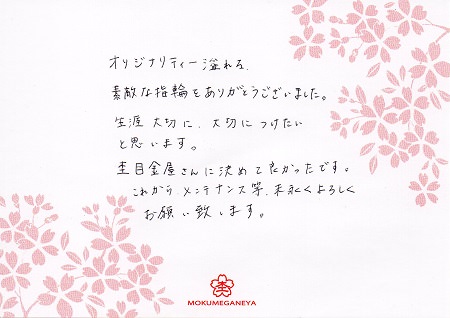 オリジナリティー溢れる、
素敵な指輪をありがとうございました。
生涯大切に、大切につけたい
と思います。
杢目金屋さんに決めて良かったです。
これから、メンテナンス等、末永くよろしく
お願い致します。
杢
MOKUMEGANEYA